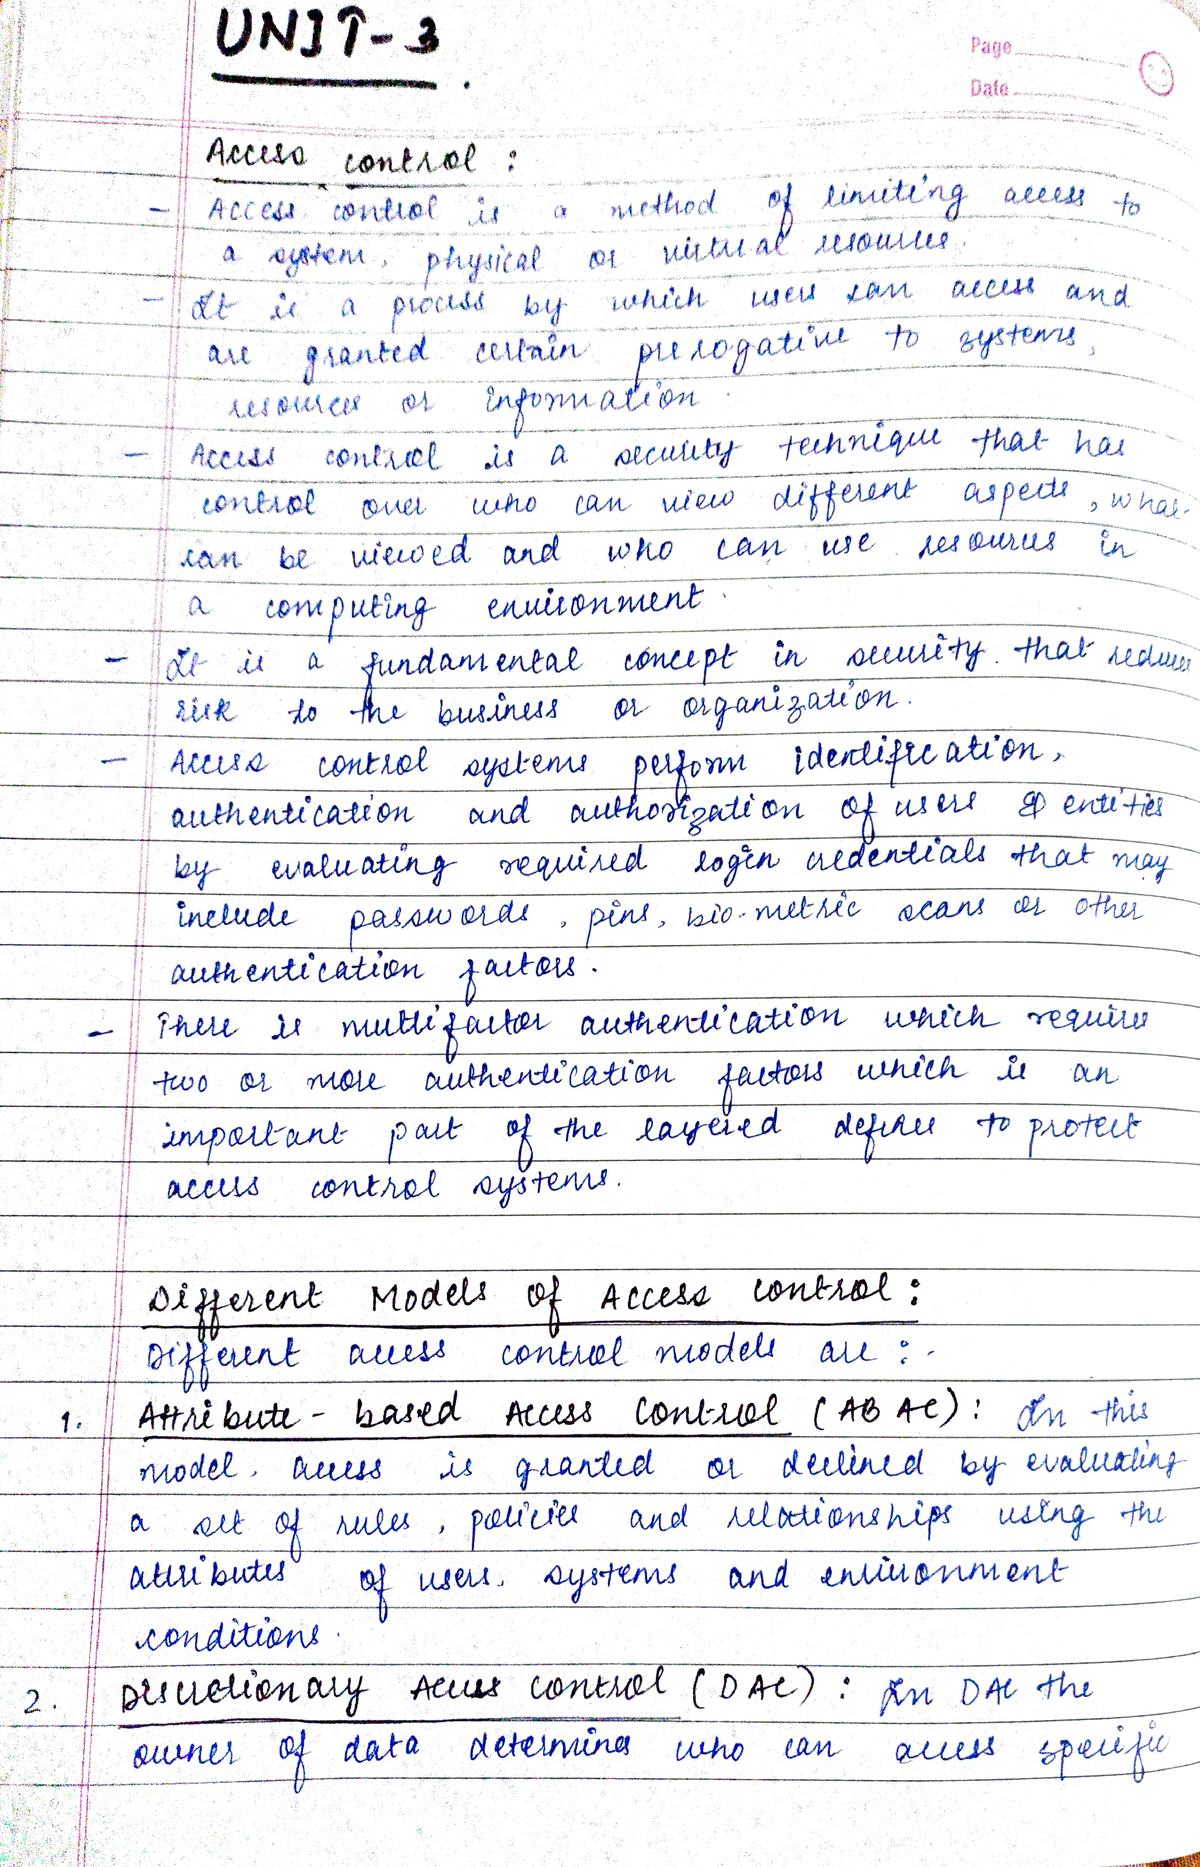 UNIT-3
Page
Date
Access control :
- Access control is a method of limiting access to
a system, physical or virtual resources.
- It is a process by which users can access and
are granted certain prerogative to systems,
resources or information.
- Access control is a security technique that has
control over who can view different aspects, what
can be viewed and who can use resources in
a computing environment.
- It is a fundamental concept in security that reduces
risk to the business or organization.
- Access control systems perform identification,
authentication and authorization of users & entities
by evaluating required login credentials that may
include passwords, pins, bio-metric scans or other
authentication factors.
- There is multifactor authentication which require
two or more authentication factors which is an
important part of the layered defense to protect
access control systems.
Different Models of Access control :
Different access control models are :-
1. Attribute-based Access Control (ABAC) : In this
model, access is granted or declined by evaluating
a set of rules, policies and relationships using the
attributes of users, systems and environment
conditions.
2. Discretionary Access control (DAC) : In DAC the
owner of data determines who can access specific